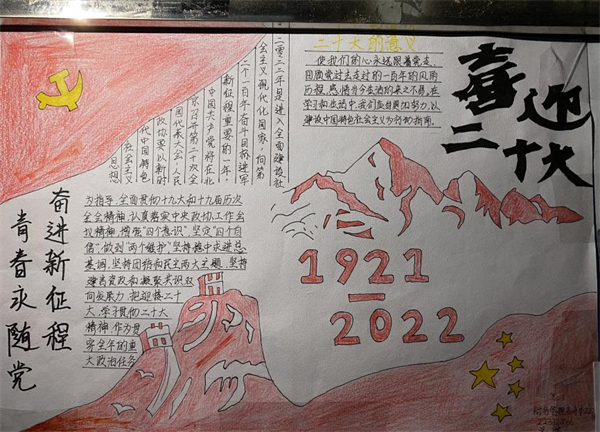 喜迎
二十大
二十大的意义
使我们的心永远跟着党走。
回顾党过去走过的一百年的风雨
历程,感悟当今生活的来之不易,在
学习和生活中,我们应当更加努力,以
建设中国特色社会主义为行动指南。
二零二二年是进入全面建设社
会主义现代化国家,向第
二个一百年奋斗目标进军
新征程重要的一年
中国共产党将在北
京召开第二十次全
国代表大会,人民
政协要以新时
代中国特色
社会主义
思想
为指导,全面贯彻十九大和十九届历次
全会精神,认真落实中央政协工作会
议精神,增强"四个意识",坚定"四个自
信",做到"两个维护",坚持稳中求进总
基调,坚持团结和民主两大主题,坚持
建言资政和凝聚共识双
向发力,把迎接二十
大,学习贯彻二十大
精神,作为贯
穿全年的重
大政治任务
奋进新征程
青春永随党
1921
—
2022